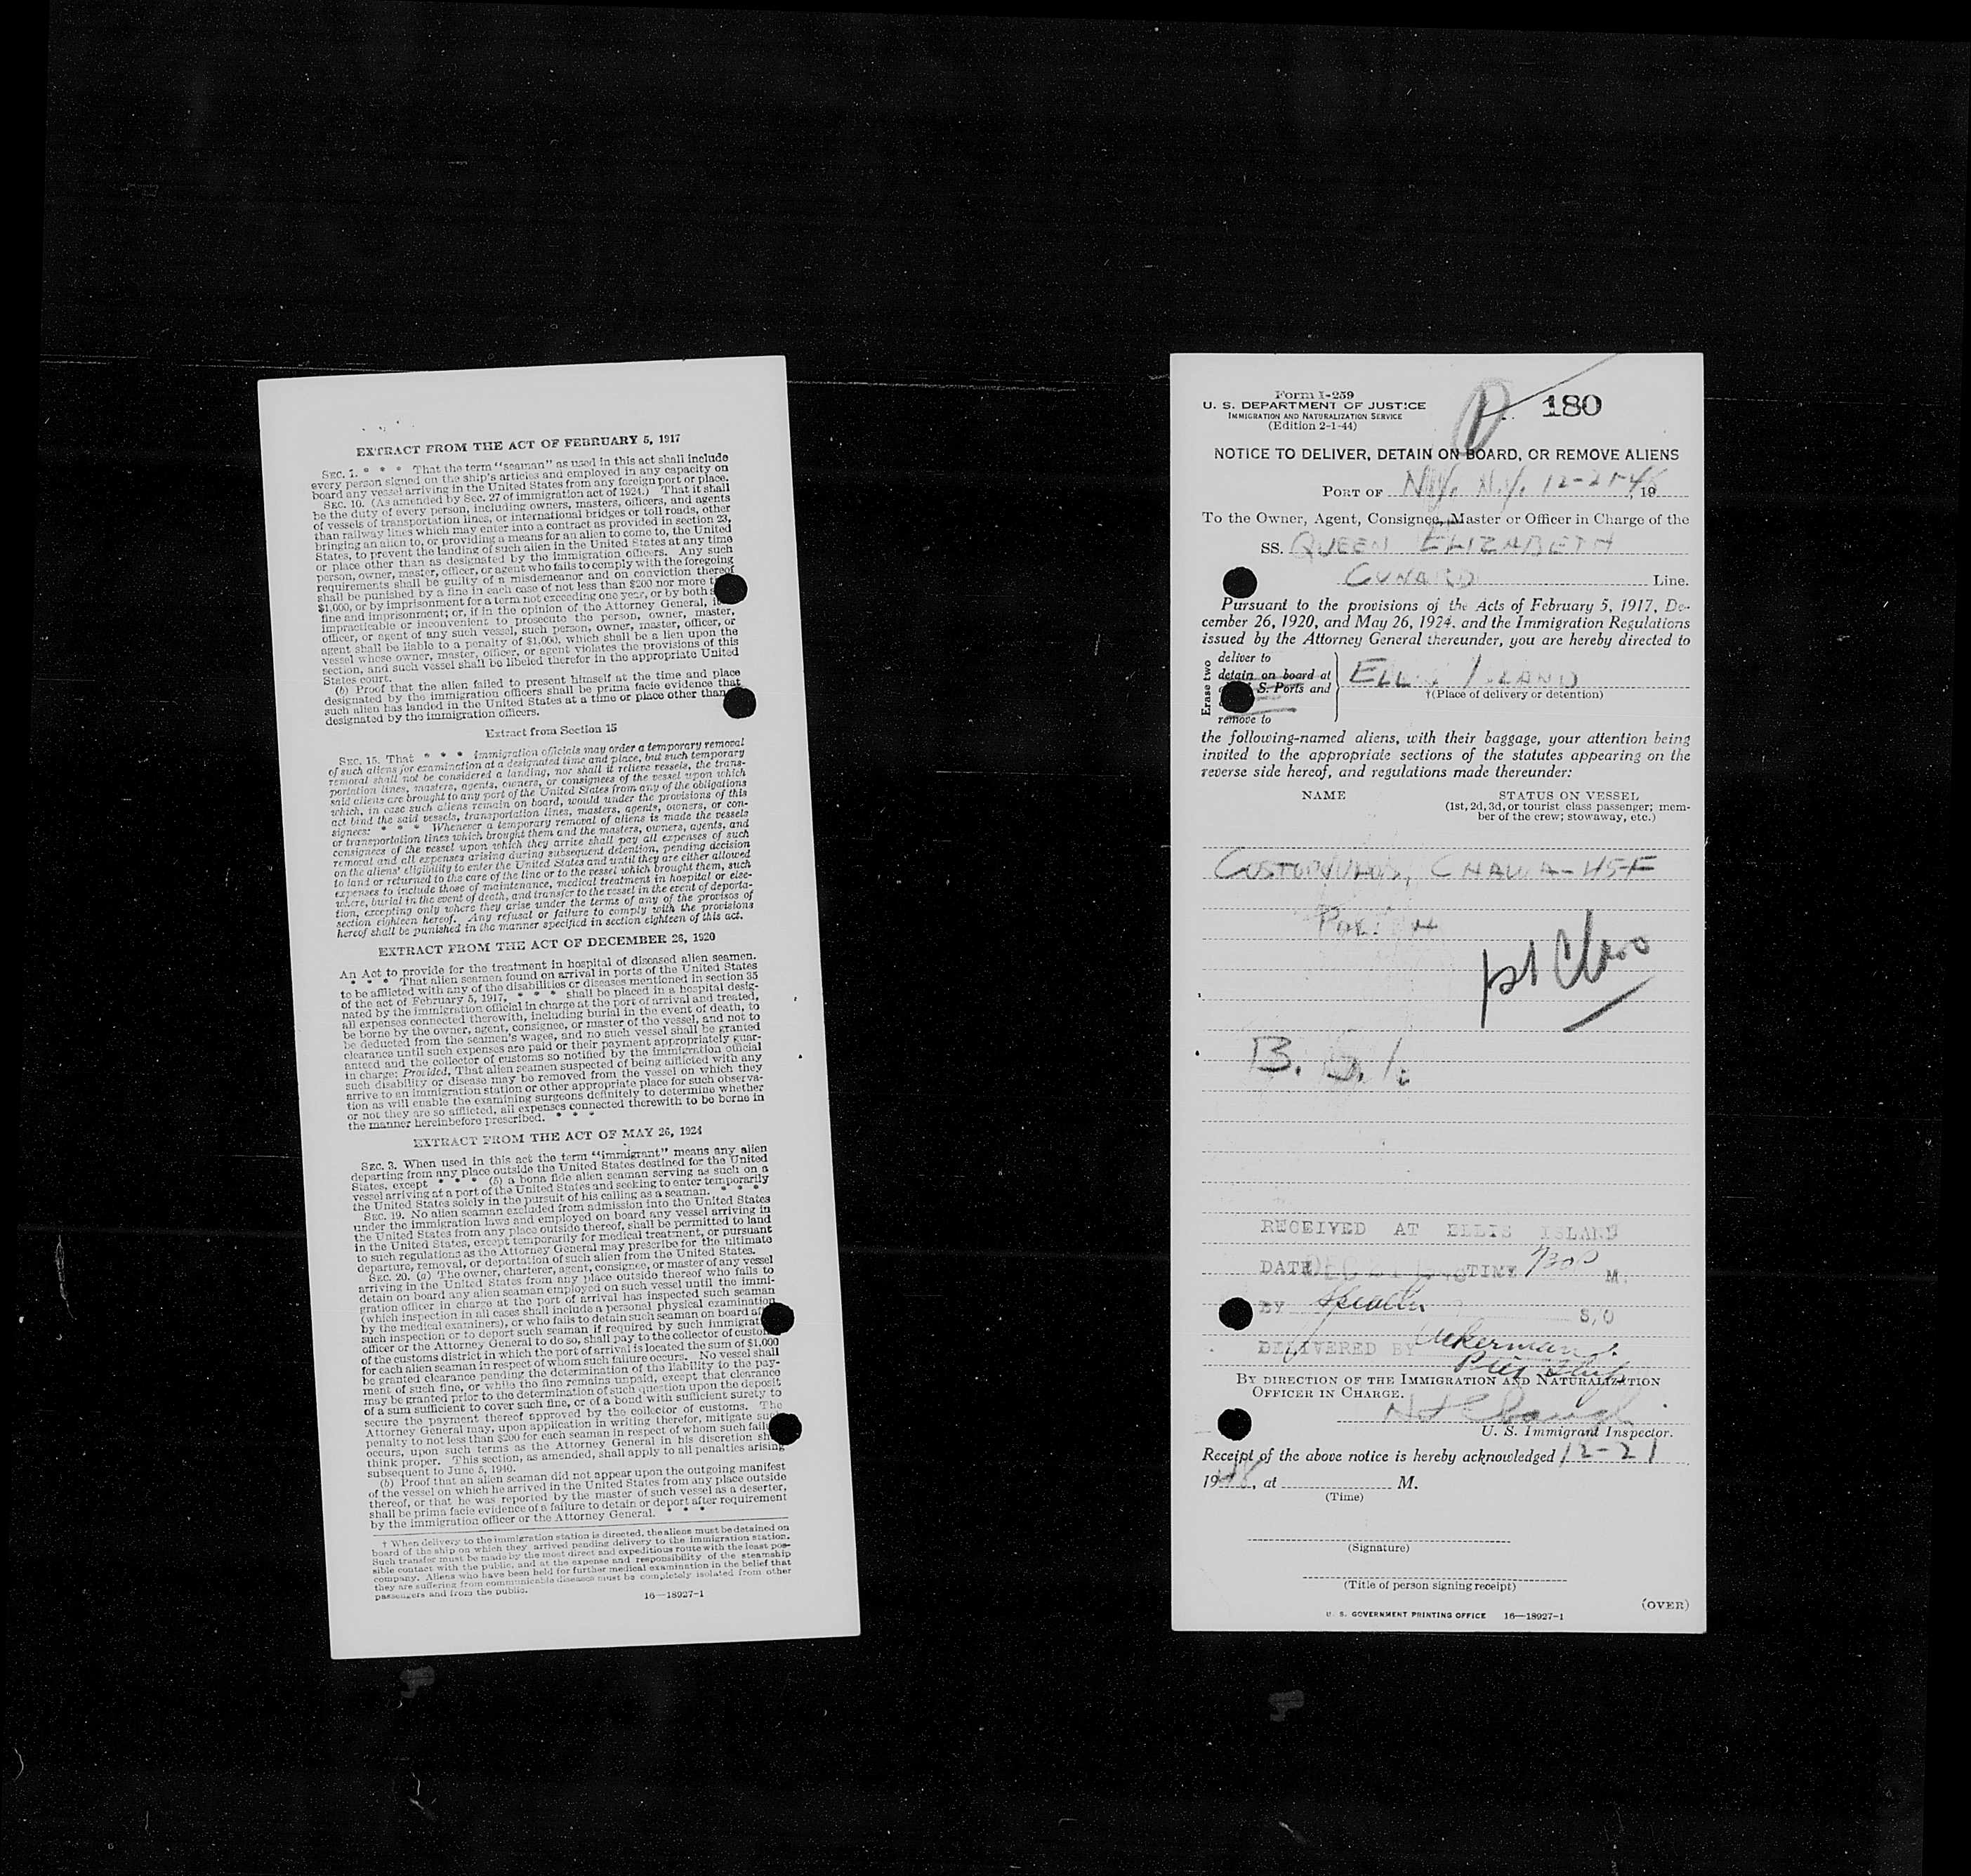 EXTRACT FROM THE ACT OF FEBRUARY 5, 1917
SEC. 1. * * * That the term "seaman" as used in this act shall include
every person signed on the ship's articles and employed in any capacity on
board any vessel arriving in the United States from any foreign port or place.
SEC. 10. (As amended by Sec. 27 of immigration act of 1924.) That it shall
be the duty of every person, including owners, masters, officers, and agents
of vessels of transportation lines, or international bridges or toll roads, other
than railway lines which may enter into a contract as provided in section 23,
bringing an alien to, or providing a means for an alien to come to, the United
States, to prevent the landing of such alien in the United States at any time
or place other than as designated by the immigration officers. Any such
person, owner, master, officer, or agent who fails to comply with the foregoing
requirements shall be guilty of a misdemeanor and on conviction thereof
shall be punished by a fine in each case of not less than $200 nor more
$1,000, or by imprisonment for a term not exceeding one year, or by both
fine and imprisonment; or, if in the opinion of the Attorney General,
impracticable or inconvenient to prosecute the person, owner, master,
officer, or agent of any such vessel, such person, owner, master, officer, or
agent shall be liable to a penalty of $1,000, which shall be a lien upon the
vessel whose owner, master, officer, or agent violates the provisions of this
section, and such vessel shall be libeled therefor in the appropriate United
States court.
(b) Proof that the alien failed to present himself at the time and place
designated by the immigration officers shall be prima facie evidence that
such alien has landed in the United States at a time or place other than
designated by the immigration officers.
Extract from Section 15
SEC. 15. That * * * Immigration officials may order a temporary removal
of such aliens for examination at a designated time and place, but such temporary
removal shall not be considered a landing, nor shall it relieve vessels, the trans-
portation lines, masters, agents, owners, or consignees of the vessel upon which
said aliens are brought to any port of the United States from any of the obligations
which, in case such aliens remain on board, would under the provisions of this
act bind the said vessels, transportation lines, masters, agents, owners, or con-
signees: * * * Whenever a temporary removal of aliens is made the vessels
or transportation lines which brought them and the masters, owners, agents, and
consignees of the vessel upon which they arrive shall pay all expenses of such
removal and all expenses arising during subsequent detention, pending decision
on the aliens' eligibility to enter the United States and until they are either allowed
to land or returned to the care of the line or to the vessel which brought them, such
expenses to include those of maintenance, medical treatment in hospital or else-
where, burial in the event of death, and transfer to the vessel in the event of deporta-
tion, excepting only where they arise under the terms of any of the provisos of
section eighteen hereof. Any refusal or failure to comply with the provisions
hereof shall be punished in the manner specified in section eighteen of this act.
EXTRACT FROM THE ACT OF DECEMBER 26, 1920
An Act to provide for the treatment in hospital of diseased alien seamen.
* * * That alien seamen found on arrival in ports of the United States
to be afflicted with any of the disabilities or diseases mentioned in section 35
of the act of February 5, 1917, * * * shall be placed in a hospital desig-
nated by the immigration official in charge at the port of arrival and treated,
all expenses connected therewith, including burial in the event of death, to
be borne by the owner, agent, consignee, or master of the vessel, and not to
be deducted from the seamen's wages, and no such vessel shall be granted
clearance until such expenses are paid or their payment appropriately guar-
anteed and the collector of customs so notified by the immigration official
in charge: Provided, That alien seamen suspected of being afflicted with any
such disability or disease may be removed from the vessel on which they
arrive to an immigration station or other appropriate place for such observa-
tion as will enable the examining surgeons definitely to determine whether
or not they are so afflicted, all expenses connected therewith to be borne in
the manner hereinbefore prescribed. * * *
EXTRACT FROM THE ACT OF MAY 26, 1924
SEC. 3. When used in this act the term "immigrant" means any alien
departing from any place outside the United States destined for the United
States, except * * * (5) a bona fide alien seaman serving as such on a
vessel arriving at a port of the United States and seeking to enter temporarily
the United States solely in the pursuit of his calling as a seaman. * * *
SEC. 19. No alien seaman excluded from admission into the United States
under the immigration laws and employed on board any vessel arriving in
the United States from any place outside thereof, shall be permitted to land
in the United States, except temporarily for medical treatment, or pursuant
to such regulations as the Attorney General may prescribe for the ultimate
departure, removal, or deportation of such alien from the United States.
SEC. 20. (a) The owner, charterer, agent, consignee, or master of any vessel
arriving in the United States from any place outside thereof who fails to
detain on board any alien seaman employed on such vessel until the immi-
gration officer in charge at the port of arrival has inspected such seaman
(which inspection in all cases shall include a personal physical examination
by the medical examiners), or who fails to detain such seaman on board
such inspection or to deport such seaman if required by such
officer or the Attorney General to do so, shall pay to the collector of
of the customs district in which the port of arrival is located the sum of $1,000
for each alien seaman in respect of whom such failure occurs. No vessel shall
be granted clearance pending the determination of the liability to the pay-
ment of such fine, or while the fine remains unpaid, except that clearance
may be granted prior to the determination of such question upon the deposit
of a sum sufficient to cover such fine, or of a bond with sufficient surety to
secure the payment thereof approved by the collector of customs. The
Attorney General may, upon application in writing therefor, mitigate
penalty to not less than $200 for each seaman in respect of whom such
occurs, upon such terms as the Attorney General in his discretion
think proper. This section, as amended, shall apply to all penalties arising
subsequent to June 5, 1940.
(b) Proof that an alien seaman did not appear upon the outgoing manifest
of the vessel on which he arrived in the United States from any place outside
thereof, or that he was reported by the master of such vessel as a deserter,
shall be prima facie evidence of a failure to detain or deport after requirement
by the immigration officer or the Attorney General. * * *
† When delivery to the immigration station is directed, the aliens must be detained on
board of the ship on which they arrived pending delivery to the immigration station.
Such transfer must be made by the most direct and expeditious route with the least pos-
sible contact with the public, and at the expense and responsibility of the steamship
company. Aliens who have been held for further medical examination in the belief that
they are suffering from communicable diseases must be completely isolated from other
passengers and from the public.
16—18927-1
Form I-259
U. S. DEPARTMENT OF JUSTICE
IMMIGRATION AND NATURALIZATION SERVICE
(Edition 2-1-44)
180
NOTICE TO DELIVER, DETAIN ON BOARD, OR REMOVE ALIENS
PORT OF N.Y. N.Y. 12-21-48, 19
To the Owner, Agent, Consignee, Master or Officer in Charge of the
SS. QUEEN ELIZABETH
CUNARD Line.
Pursuant to the provisions of the Acts of February 5, 1917, De-
cember 26, 1920, and May 26, 1924, and the Immigration Regulations
issued by the Attorney General thereunder, you are hereby directed to
Erase two
deliver to
detain on board at
S. Ports and
remove to
ELLIS ISLAND
†(Place of delivery or detention)
the following-named aliens, with their baggage, your attention being
invited to the appropriate sections of the statutes appearing on the
reverse side hereof, and regulations made thereunder:
NAME
STATUS ON VESSEL
(1st, 2d, 3d, or tourist class passenger; mem-
ber of the crew; stowaway, etc.)
45-F
B. S. I.
RECEIVED AT ELLIS ISLAND
DATE DEC 21 TIME 730P M.
BY S/O
DELIVERED BY
BY DIRECTION OF THE IMMIGRATION AND NATURALIZATION
OFFICER IN CHARGE.
U. S. Immigrant Inspector.
Receipt of the above notice is hereby acknowledged 12-21
1948, at M.
(Time)
(Signature)
(Title of person signing receipt)
(OVER)
U. S. GOVERNMENT PRINTING OFFICE 16—18927-1